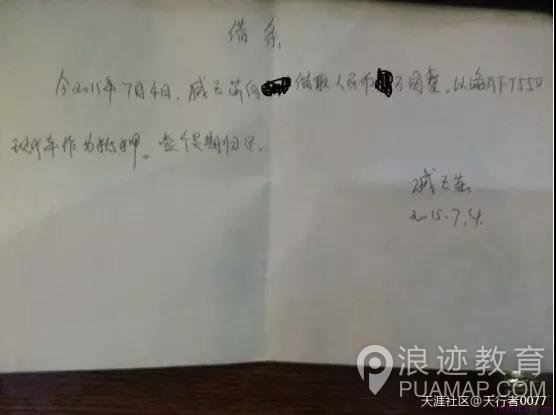 借条
今2015年7月4日,戚云苗向 借取人民币 万圆整。以渝AFT550
现代车作为抵押。 归还。
戚云苗
2015.7.4.
浪迹教育
PUAMAP.COM
天涯社区@天行者0077